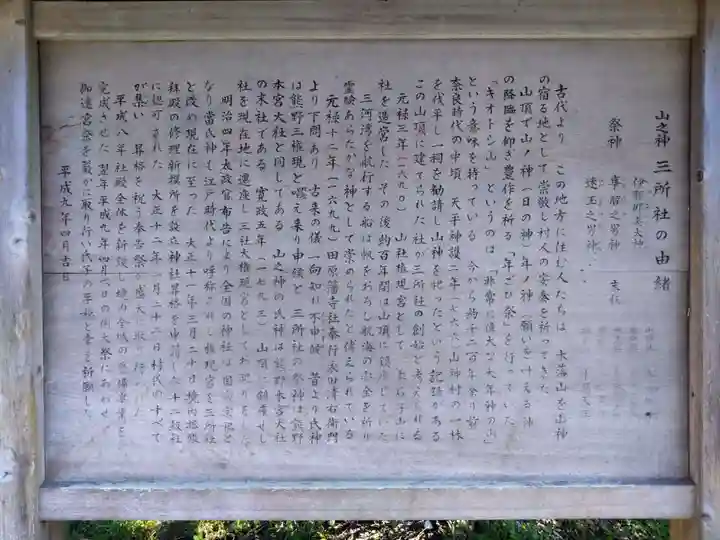 山之神 三所社の由緒
祭神
伊邪那美大神
事解之男神
速玉之男神
末社
古代より この地方に住む人たちは 木落山を山神
の宿る地として崇敬し村人の安泰を祈ってきた
山頂で山ノ神(日の神)年ノ神(願いを叶える神
の降臨を仰ぎ豊作を祈る「年ごひ祭」を行っていた
「キオトシ山」というのは「非常に偉大な大年神の山」
という意味を持っている 今から約千二百年余り前
奈良時代の中頃 天平神護二年(七六六)山神村の一株
を伐採し一祠を勧請し山神を祀ったという記録がある
この山頂に建てられた社が三所社の創始と考えられる
元禄三年(一六九〇) 山社権現宮として 山に
社を造営した その後約百年間は山頂に鎮座していた
三河湾を航行する船は帆をおろし航海の安全を祈り
霊験あらたかな神として崇められたと伝えられている
元禄十二年(一六九九)田原藩寺社奉行 清右衛門
より下問あり 古来の儀一向知れ不申候 昔より氏神
は熊野三権現と唱え来り申候と 三所社の祭神は熊野
本宮大社と同じである 山之神の氏神は熊野本宮大社
の末社である 寛政五年(一七九三) 山頂に鎮座せし
社を現在地に遷座し三社大権現宮としてお祀りをした
明治四年太政官布告により全国の神社は国の宗祀と
なり當氏神も江戸時代より呼称された権現宮を三所社
と改め現在に至った 大正十一年三月三十日境内拡張
拝殿の修理新撰所を設立神社昇格を申請した 十二級社
に認可された 大正十二年一月二十二日村氏のすべて
が集い 昇格を祝う奉告祭が盛大に取り行われた
平成八年社殿全体を新築し境内全域の整備事業を
完成させた 翌年平成九年四月一日の例大祭にあわせ
御遷宮祭を厳かに取り行い氏子の平和と幸を祈願した
平成九年四月吉日